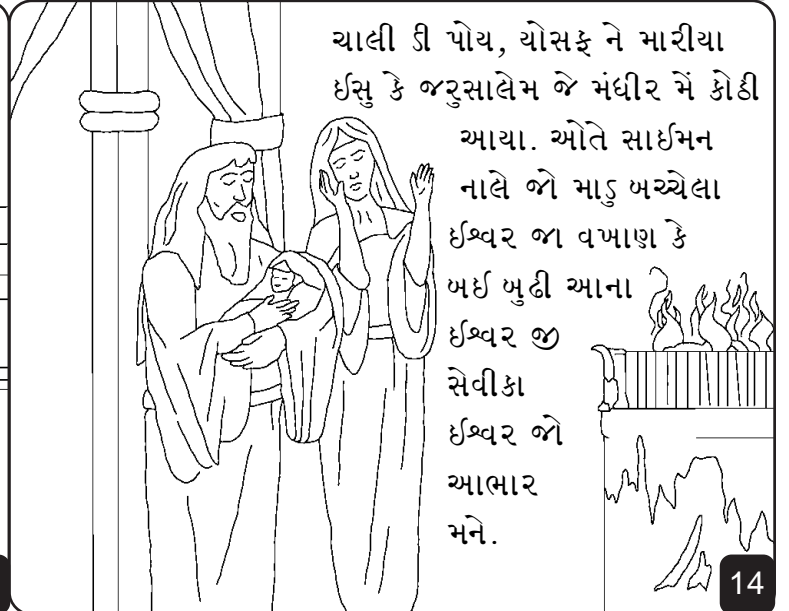 ચાલી ડી પોય, યોસફ ને મારીયા
ઈસુ કે જરુસાલેમ જે મંધીર મેં કોઠી
આયા. ઓતે સાઈમન
નાલે જો માડુ બચ્ચેલા
ઈશ્વર જા વખાણ કે
બઈ બુઢી આના
ઈશ્વર જી
સેવીકા
ઈશ્વર જો
આભાર
મને.
14